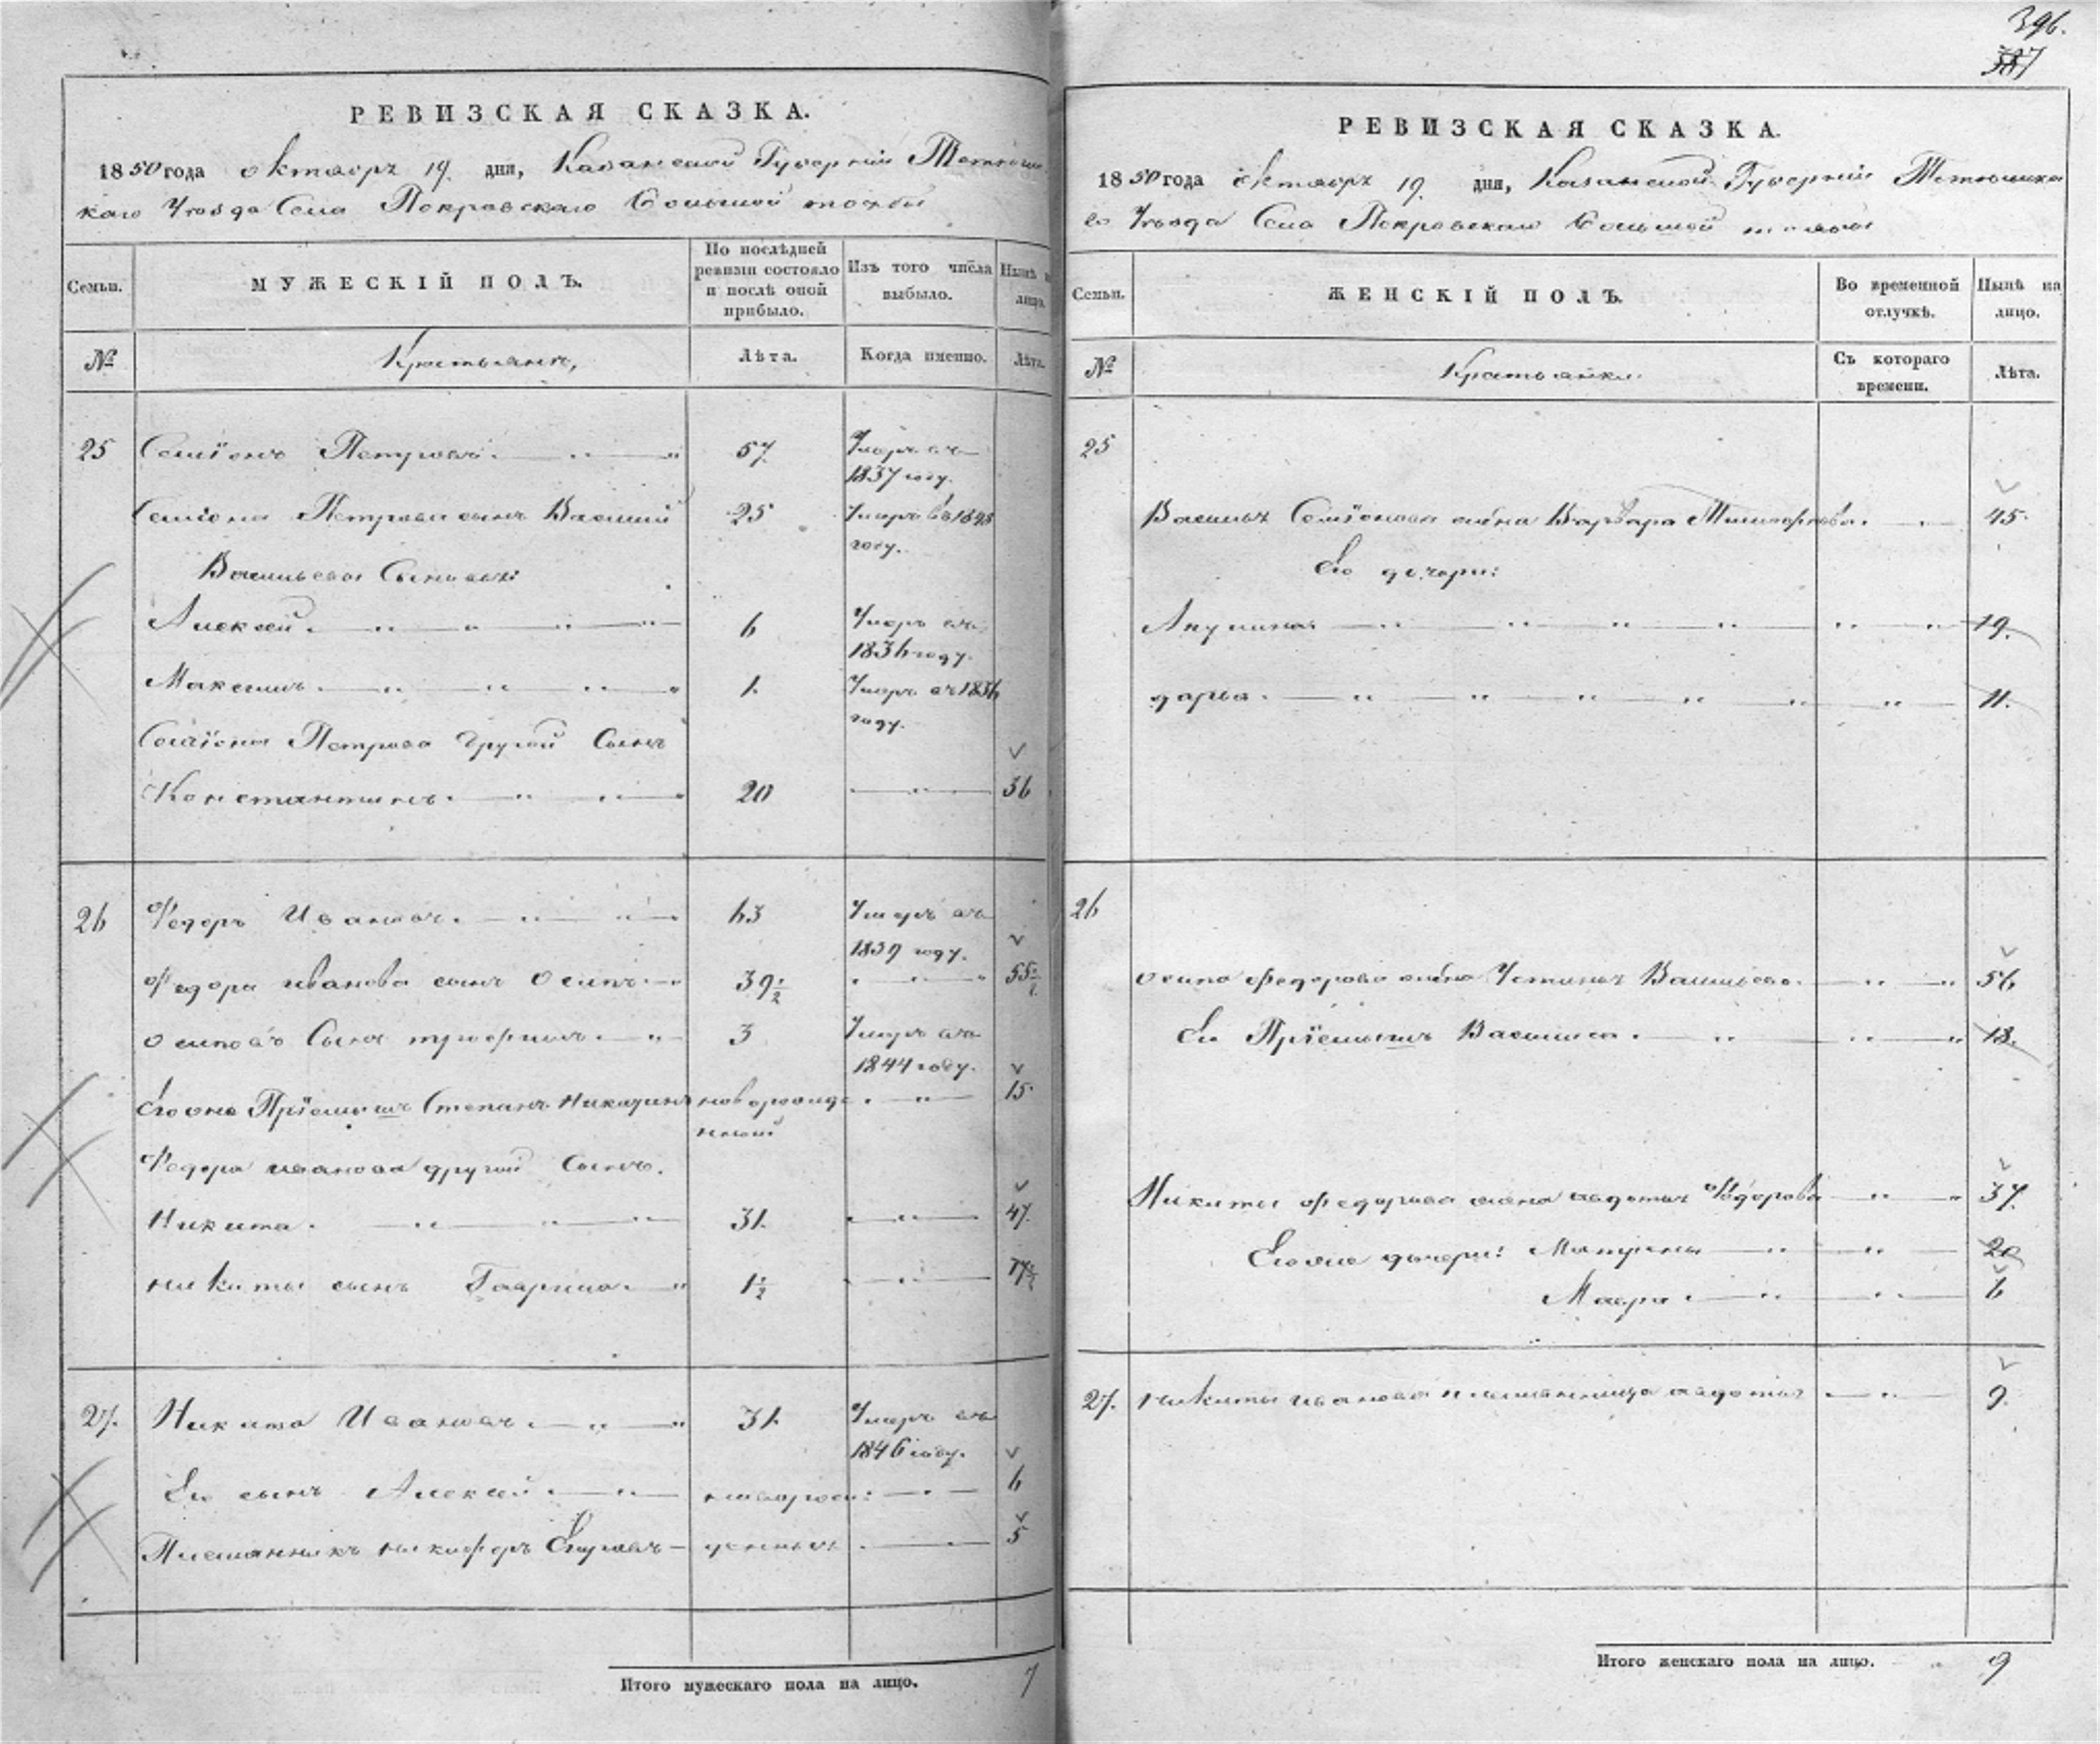 396.
387
РЕВИЗСКАЯ СКАЗКА.
1850 года октября 19. дня, Казанской Губернии Тетюшс
каго Уезда Села Покровскаго Большой тожбы
Семьи.
МУЖЕСКІЙ ПОЛЪ.
По послѣдней ревизіи состояло и послѣ оной прибыло.
Изъ того числа выбыло.
Нынѣ на лицо.
№
Крестьянъ,
Лѣта.
Когда именно.
Лѣта.
25 Семіонъ Петровъ. 57. Умеръ въ
1837 году.
Семіона Петрова сынъ Василий 25 Умеръ въ 1848
году.
Васильева Сыновья:
Алексей. 6 Умеръ въ
1836 году.
Максимъ. 1. Умеръ въ 1836
году.
Семіона Петрова другой Сынъ
Константинъ. 20 36
26 Федоръ Ивановъ. 63 Умеръ въ
1839 году.
Федора иванова сынъ Осипъ. 39½ 55½
осиповъ Сынъ трифонъ. 3 Умеръ въ
1844 году.
Его оне Пріемышъ Степанъ Никитинъ новорожд 15
нный
Федора иванова другой Сынъ.
Никита. 31. 47.
никиты сынъ Гаврила. 1½ 17½
27. Никита Ивановъ. 31. Умеръ въ
1846 году.
Его сынъ Алексей. новорож: 6
Племянникъ никифоръ Егоровъ денныя 5
Итого мужескаго пола на лицо. 7
РЕВИЗСКАЯ СКАЗКА.
1850 года октября 19. дня, Казанской Губернии Тетюшска
го Уезда Села Покровскаго Большой тожбы
Семьи.
ЖЕНСКІЙ ПОЛЪ.
Во временной отлучкѣ.
Нынѣ на лицо.
№
Крестьянки.
Съ котораго времени.
Лѣта.
25
Василья Семіонова жена Варвара Тимофеева. 45.
Его дочери:
Акулина 19.
дарья. 11.
26
осипа Федорова жена Устинья Васильева. 56
Ея Пріемышъ Василиса. 18.
Никиты Федорова жена авдотья Федорова 37.
Его оне дочери: Матрена 20
Мавра. 6
27. никиты иванова племянница авдотья 9.
Итого женскаго пола на лицо. 9